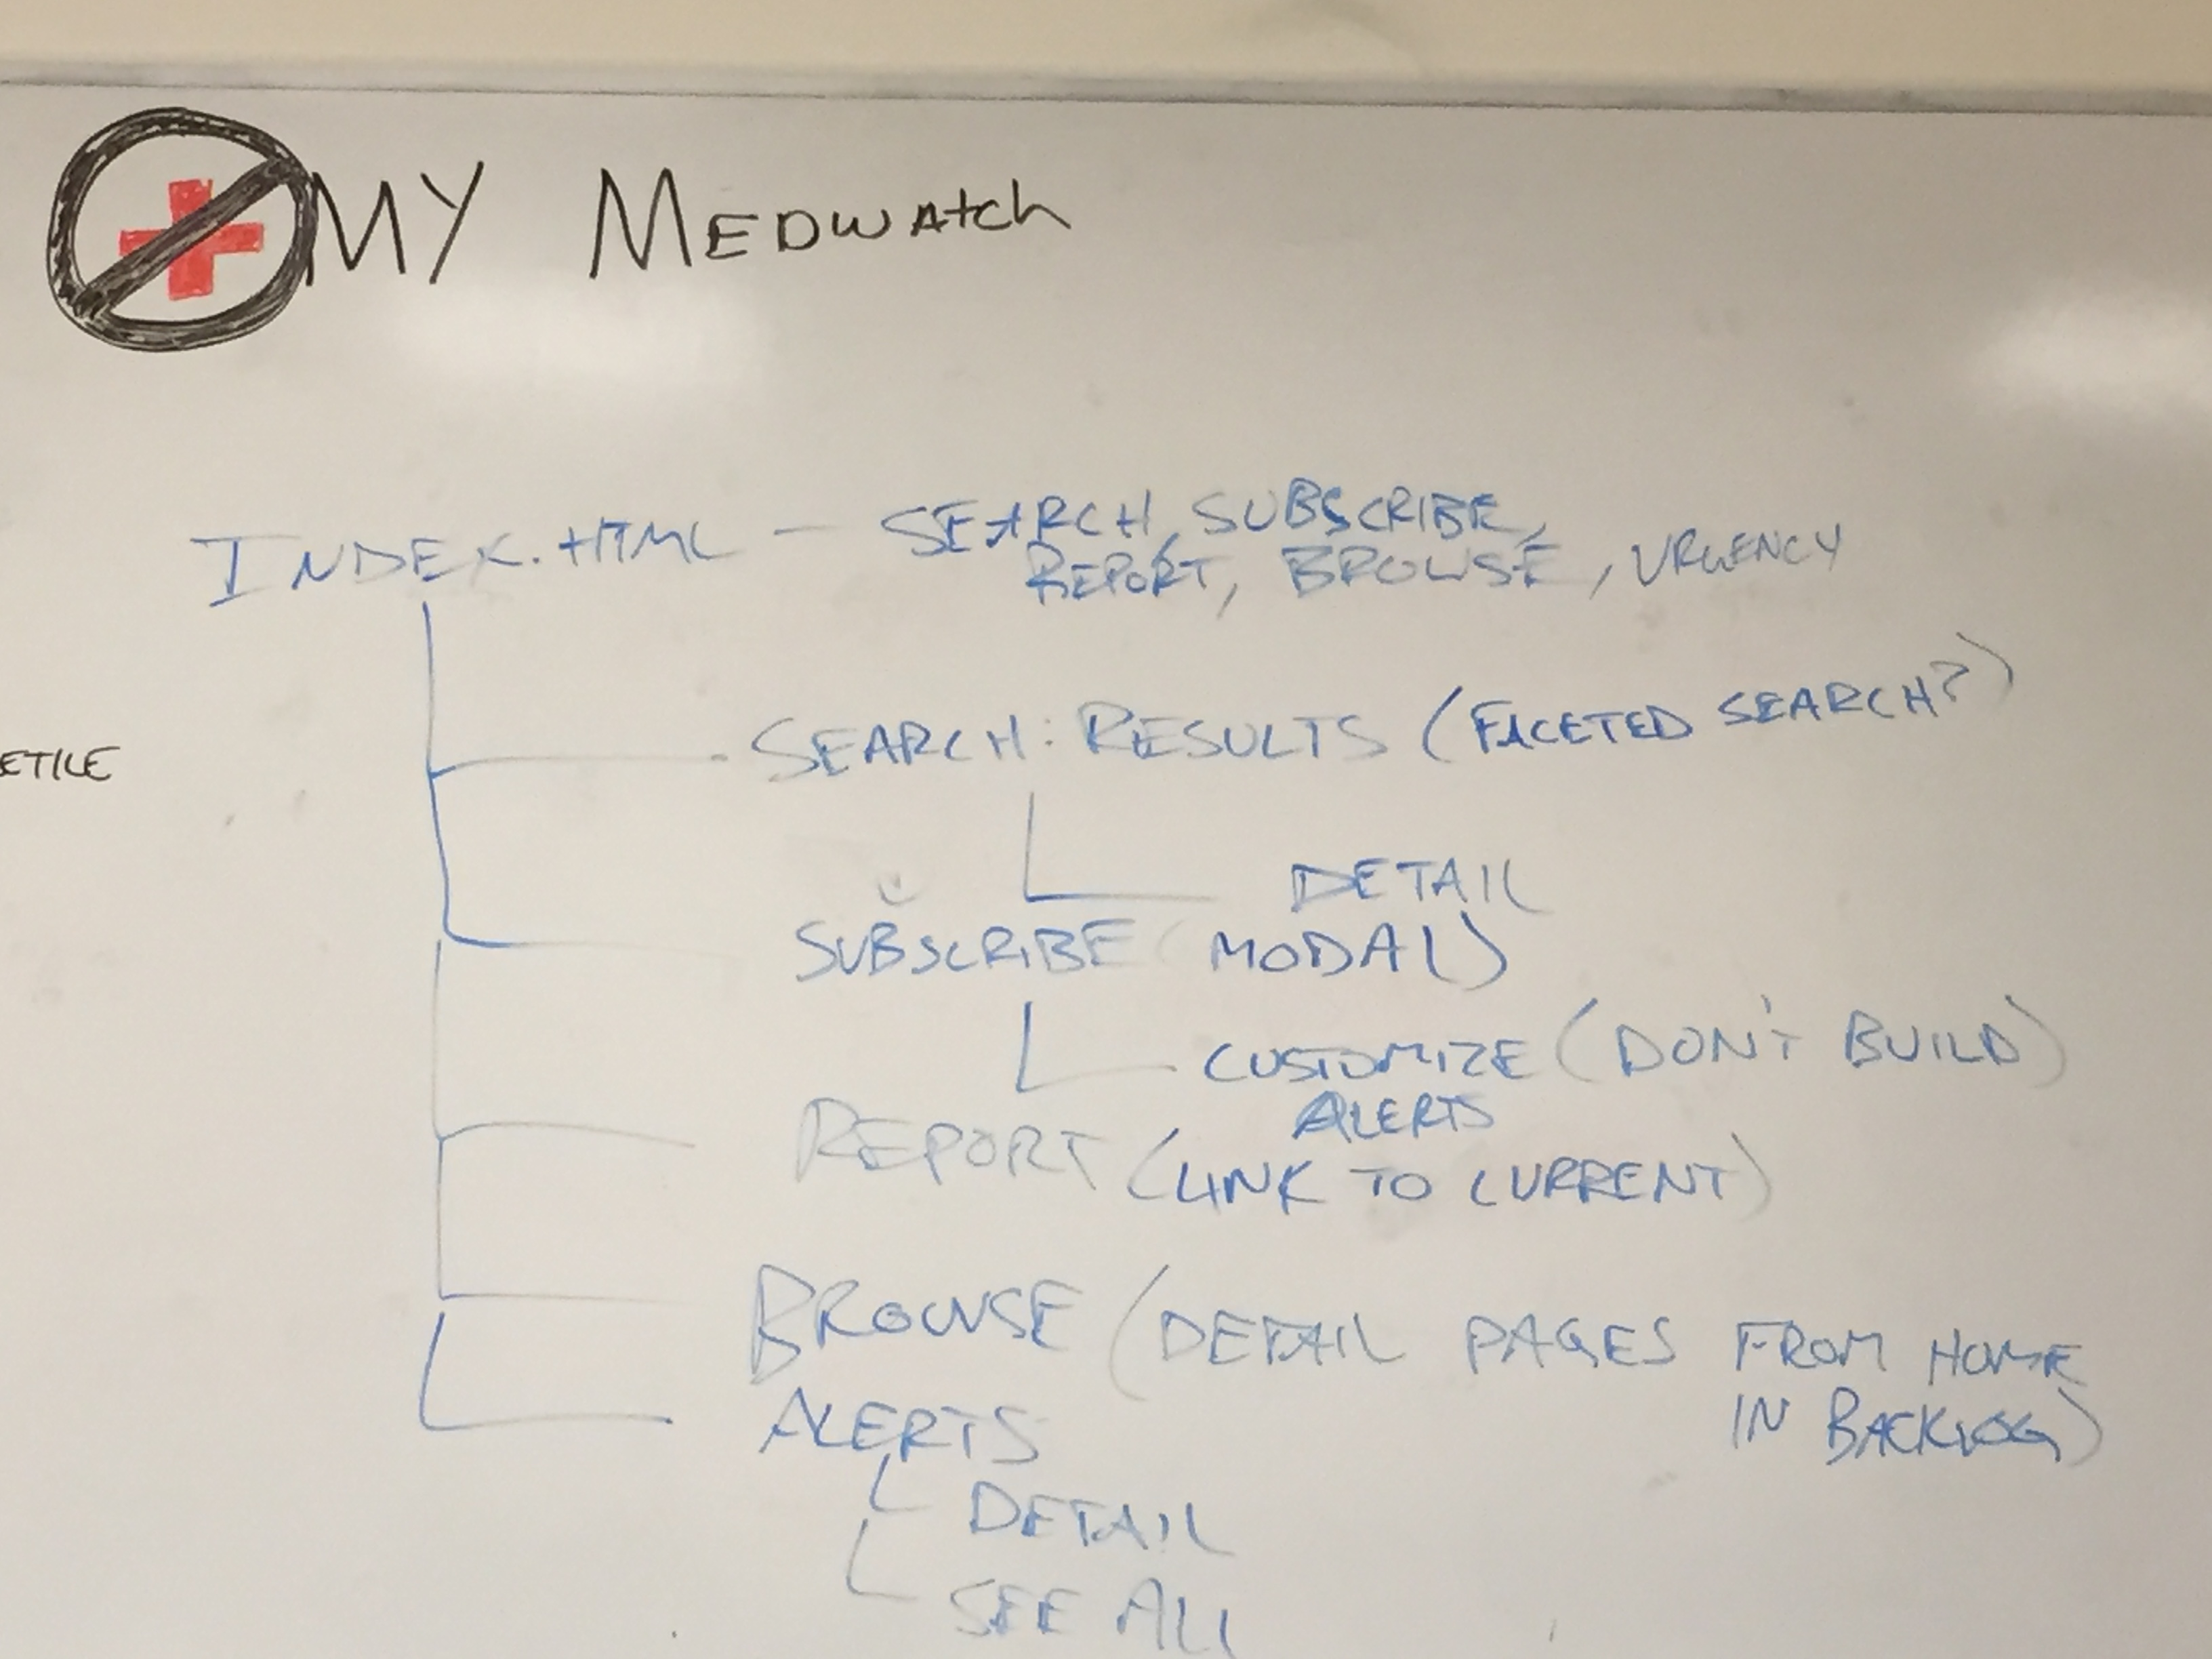 MY MEDWATCH
INDEX.HTML — SEARCH, SUBSCRIBE,
REPORT, BROWSE, URGENCY
SEARCH: RESULTS (FACETED SEARCH?)
ETILE
DETAIL
SUBSCRIBE (MODAL)
CUSTOMIZE (DON'T BUILD)
ALERTS
REPORT (LINK TO CURRENT)
BROWSE (DETAIL PAGES FROM HOME
IN BACKLOG)
ALERTS
DETAIL
SEE ALL